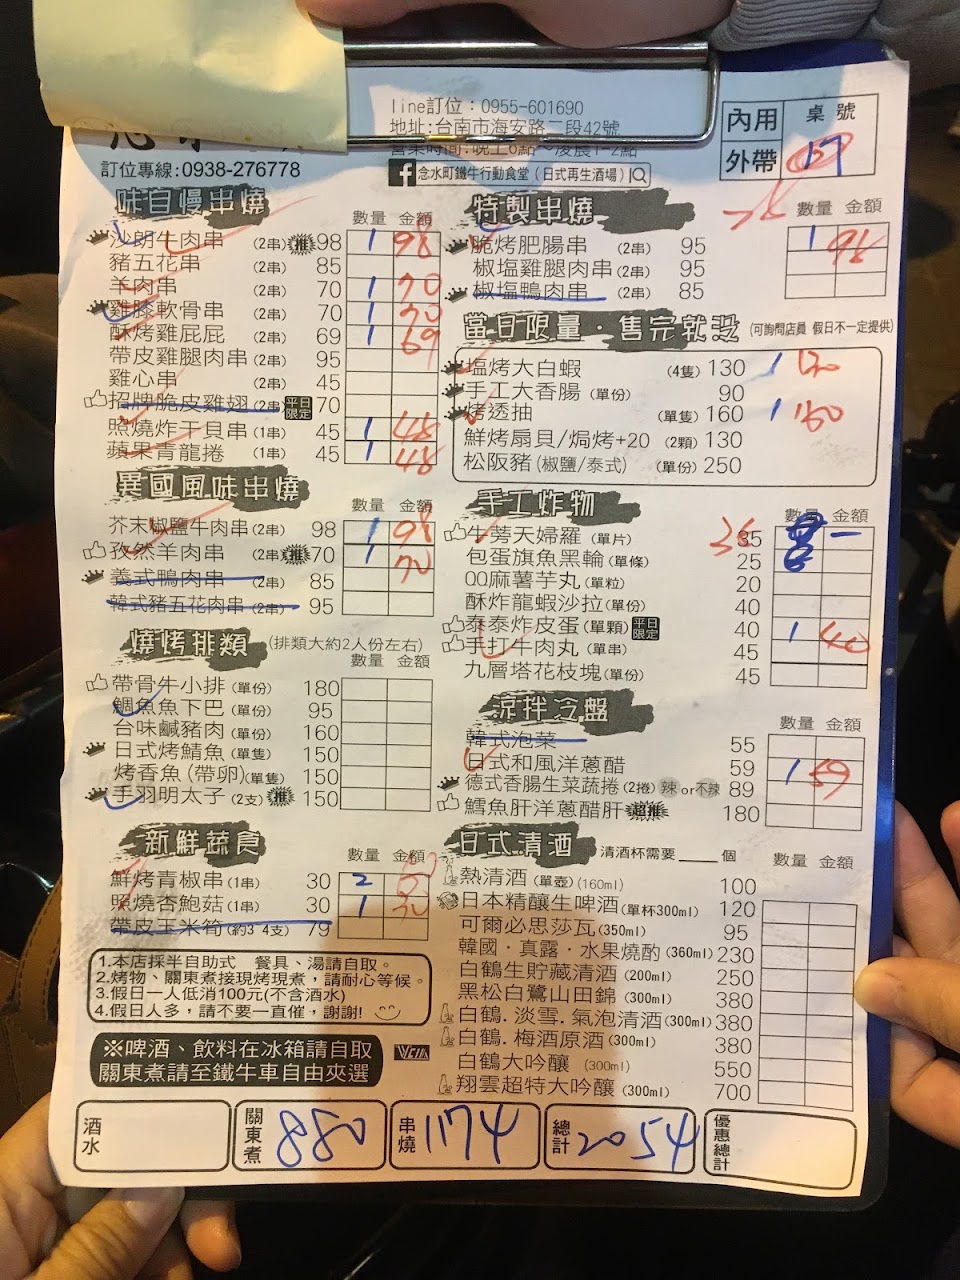 line訂位：0955-601690
地址：台南市海安路二段42號
營業時間：晚上6點～凌晨1-2點
訂位專線:0938-276778
f 念水町鐵牛行動食堂（日式再生酒場）
內用 桌號
外帶 17
味自慢串燒 數量 金額
沙朗牛肉串 (2串) 推 98 1 98
豬五花串 (2串) 85
羊肉串 (2串) 70 1 70
雞膝軟骨串 (2串) 70 1 70
酥烤雞屁屁 (2串) 69 1 69
帶皮雞腿肉串 (2串) 95
雞心串 (2串) 45
招牌脆皮雞翅 (2串) 平日限定 70
照燒炸干貝串 (1串) 45 1 45
蘋果青龍捲 (1串) 45 1 45
異國風味串燒 數量 金額
芥末椒鹽牛肉串 (2串) 98 1 98
孜然羊肉串 (2串) 推 70 1 70
義式鴨肉串 (2串) 85
韓式豬五花肉串 (2串) 95
燒烤排類 (排類大約2人份左右)
數量 金額
帶骨牛小排 (單份) 180
鯛魚魚下巴 (單份) 95
台味鹹豬肉 (單份) 160
日式烤鯖魚 (單隻) 150
烤香魚(帶卵) (單隻) 150
手羽明太子 (2支) 推 150
新鮮蔬食 數量 金額
鮮烤青椒串 (1串) 30 2
照燒杏鮑菇 (1串) 30 1 30
帶皮玉米筍 (約3-4支) 79
1.本店採半自助式　餐具、湯請自取。
2.烤物、關東煮接現烤現煮，請耐心等候。
3.假日一人低消100元(不含酒水)
4.假日人多，請不要一直催，謝謝!
※啤酒、飲料在冰箱請自取
關東煮請至鐵牛車自由夾選
特製串燒 數量 金額
脆烤肥腸串 (2串) 95 1
椒塩雞腿肉串 (2串) 95
椒塩鴨肉串 (2串) 85
當日限量．售完就沒 (可詢問店員 假日不一定提供)
塩烤大白蝦 (4隻) 130 1 130
手工大香腸 (單份) 90
烤透抽 (單隻) 160 1 160
鮮烤扇貝/焗烤+20 (2顆) 130
松阪豬(椒鹽/泰式) (單份) 250
手工炸物 數量 金額
牛蒡天婦羅 (單片) 35
包蛋旗魚黑輪 (單條) 25
QQ麻薯芋丸 (單粒) 20
酥炸龍蝦沙拉 (單份) 40
泰泰炸皮蛋 (單顆) 平日限定 40 1 40
手打牛肉丸 (單串) 45
九層塔花枝塊 (單份) 45
涼拌冷盤 數量 金額
韓式泡菜 55
日式和風洋蔥醋 59 1 59
德式香腸生菜蔬捲 (2捲) 辣 or 不辣 89
鱈魚肝洋蔥醋肝 超推 180
日式清酒 清酒杯需要____個 數量 金額
熱清酒 (單壺) (160ml) 100
日本精釀生啤酒 (單杯300ml) 120
可爾必思莎瓦 (350ml) 95
韓國．真露．水果燒酌 (360ml) 230
白鶴生貯藏清酒 (200ml) 250
黑松白鷺山田錦 (300ml) 380
白鶴. 淡雪. 氣泡清酒 (300ml) 380
白鶴. 梅酒原酒 (300ml) 380
白鶴大吟釀 (300ml) 550
翔雲超特大吟釀 (300ml) 700
酒水
關東煮 880
串燒 1174
總計 2054
優惠總計